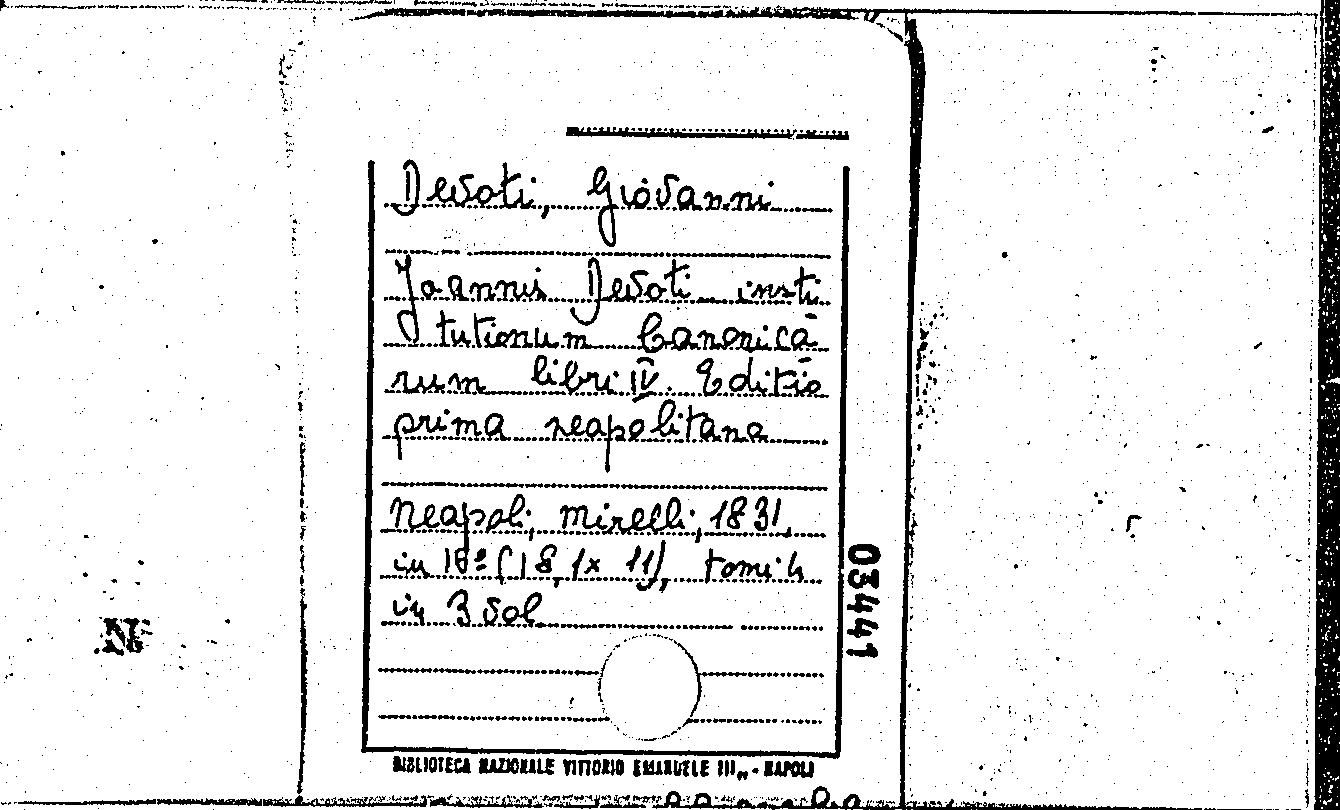 Devoti, Giovanni
Joannis Devoti insti
tutionum Canonica
rum libri IV. Editio
prima neapolitana
Neapoli, Mirelli, 1831,
in 16º (18,1x 11), tomi 4
in 3 vol.
03441
BIBLIOTECA NAZIONALE VITTORIO EMANUELE III,, - NAPOLI